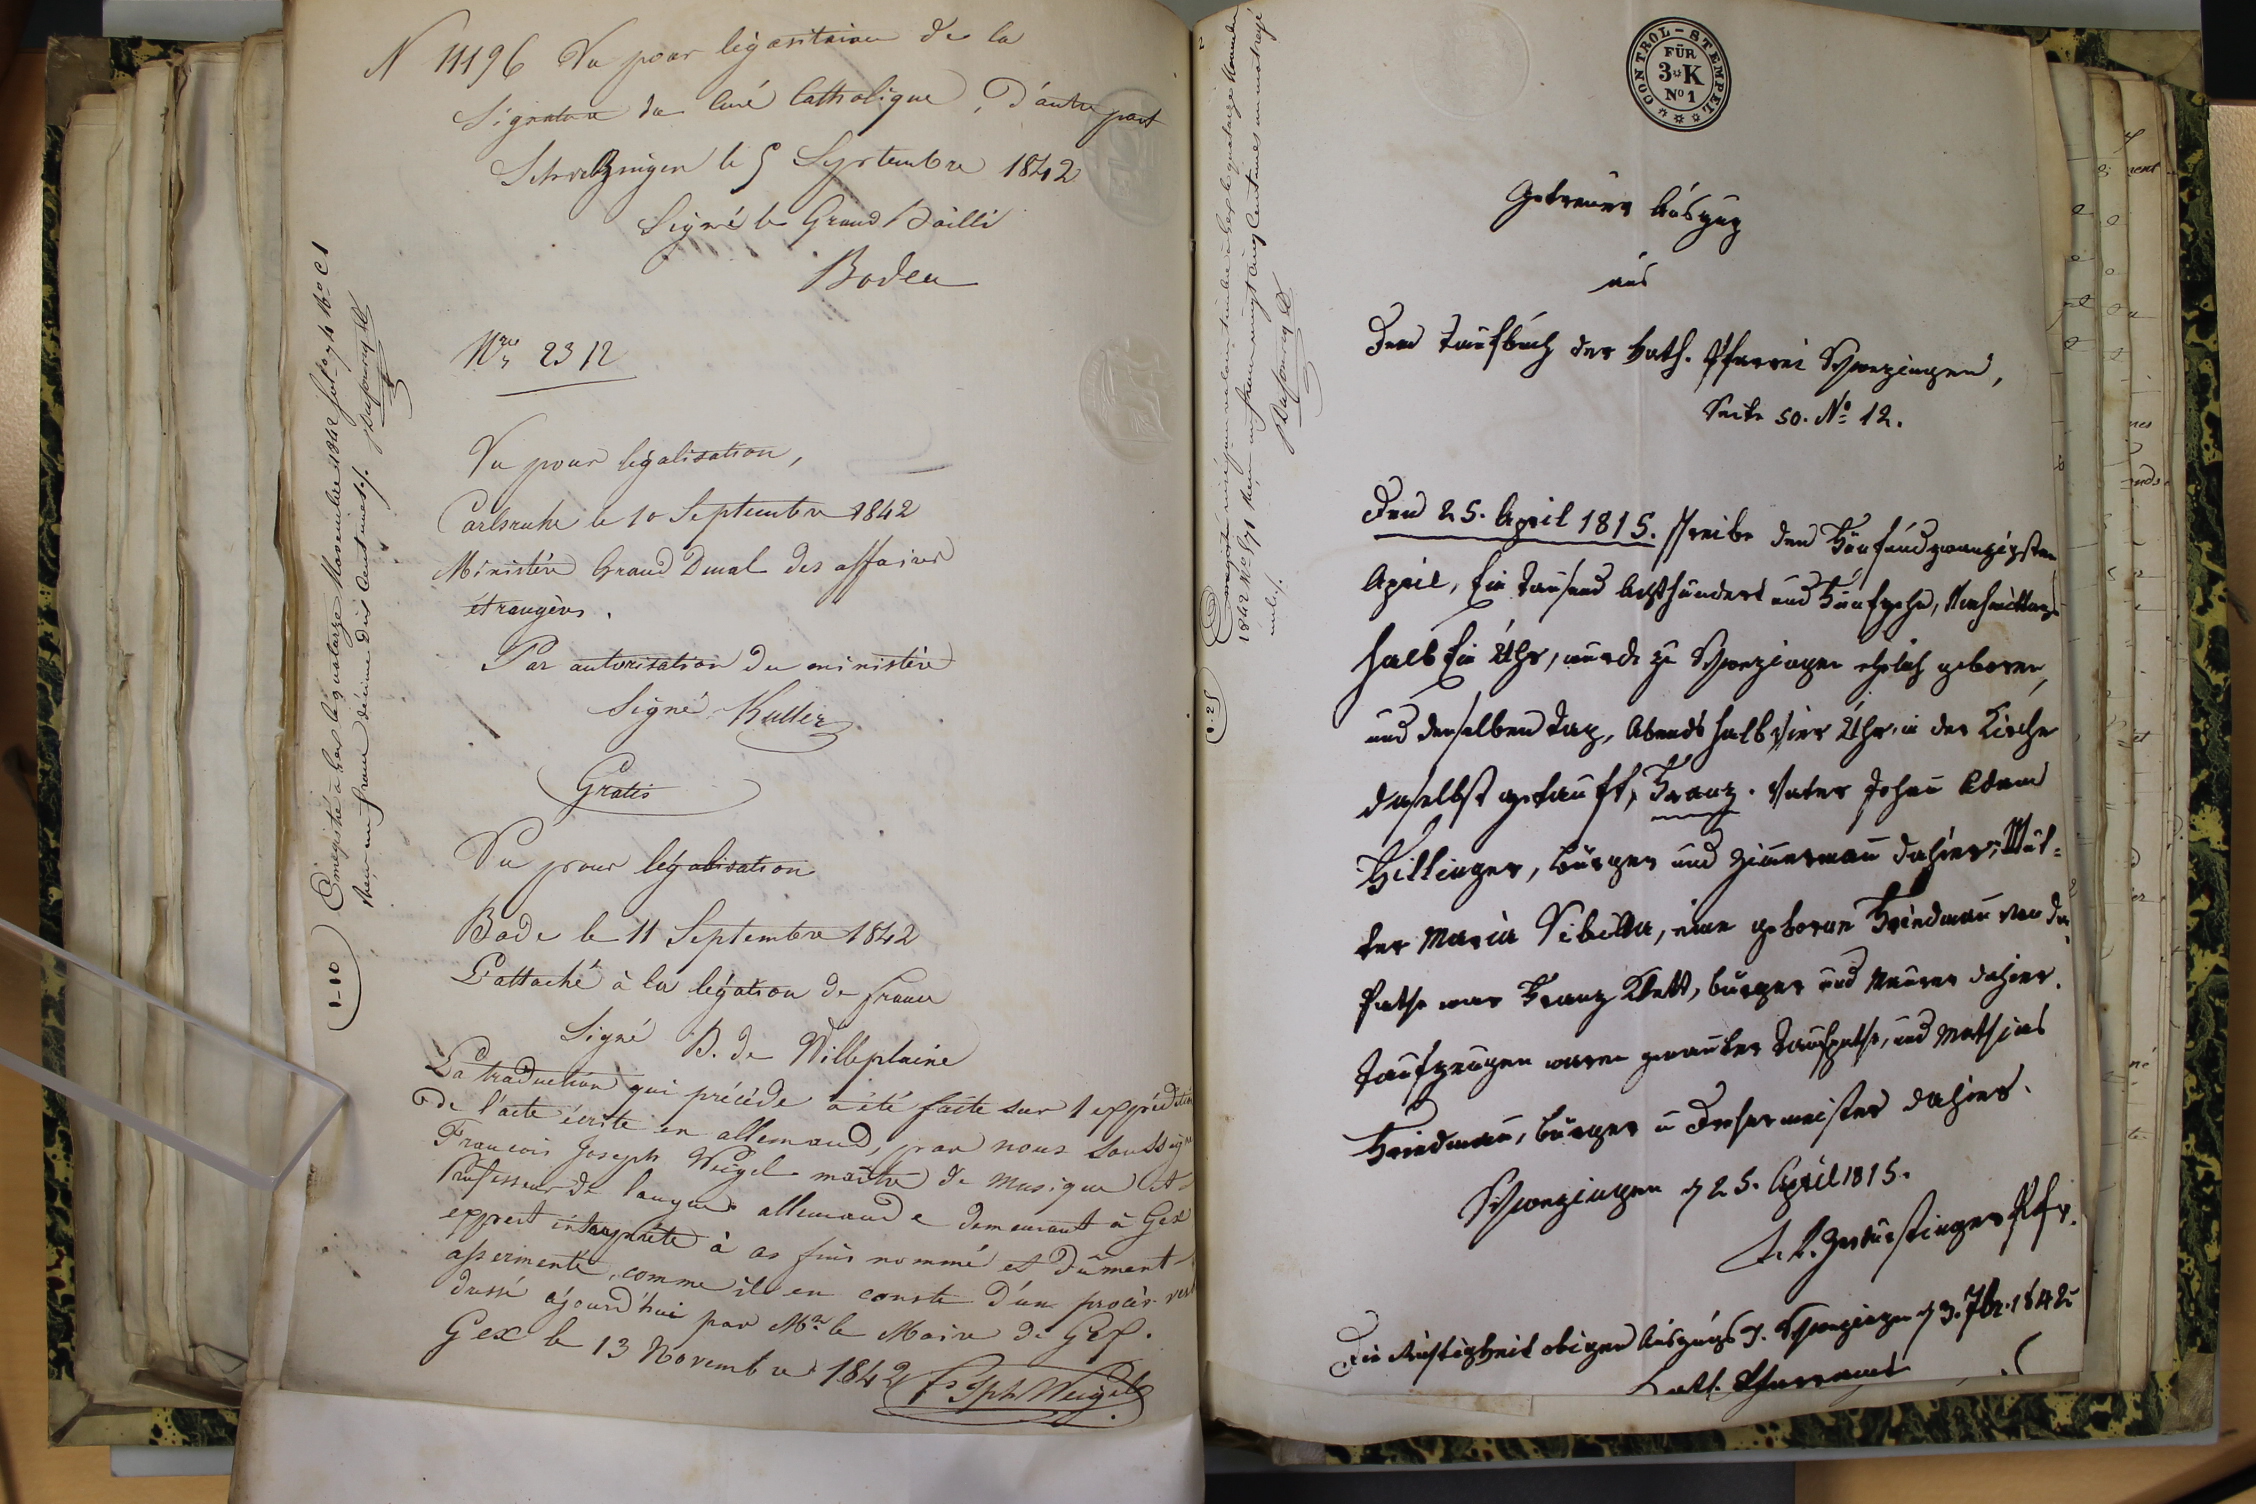 N 11196 Vu pour légasitaion de la
Signature du Curé Catholique, d'autre part
Schwetzingen le 5 Septembre 1842
Signé le Grand Bailli
Boden
Nro 2312
Vu pour légalisation,
Carlsruhe le 10 Septembre 1842
Ministère Grand Ducal des affaires
étrangères.
Par autorisation du ministère
Signé Kuller
Gratis
Vu pour légalisation
Bade le 11 Septembre 1842
L'attaché à la légation de france
Signé B. de Villeplaine
La traduction qui précède a été faite sur l'expédition
de l'acte écrite en allemand, par nous soussigné
François Joseph Weigel maître de musique et
Professeur de langue allemande demeurant à Gex
expert interprète à ces fins nommé et dûment
assermenté, comme il en conste d'un procès verb
dressé ajourd'hui par Mr le Maire de Gex.
Gex le 13 Novembre 1842 Fs Jph Weigel
1-10
Enregistré à Gex le quatorze Novembre 1842
Reçu un franc décime Dix Centimes
CONTROL-STEMPEL
FÜR
3 K
No 1
Getreuer Auszug
aus
Dem Taufbuch der kath. Pfarrei Schwezingen,
Seite 50. No 12.
Den 25. April 1815. schreibe den Fünfundzwanzigsten
April, Ein Tausend Achthundert und Fünfzehn, Nachmittags
halb Ein Uhr, wurde zu Schwezingen ehelich geboren,
und denselben Tag, Abends halb vier Uhr, in der Kirche
daselbst getauft, Franz. Vater Johan Adam
Hillinger, Bürger und Zimmerman dahier; Mut=
ter Maria Sibilla, eine geborne Friedman von da,
Pathe war Franz Klett, Bürger und Maurer dahier.
Taufzeugen waren genanter Taufpathe, und Mathias
Friedman, Bürger u Drehermeister dahier.
Schwezingen d 25. April 1815.
Pfr.
Die Richtigkeit obigen Auszugs Schwezingen d 3. 7br. 1842
Kath. Pfarramt
0.25
Enregistré
1842